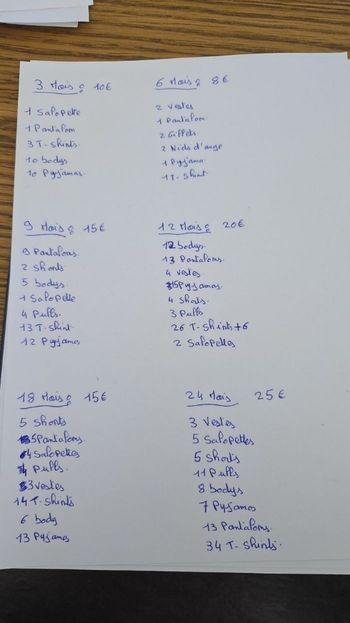 3 Mois : 10€
1 Salopette
1 Pantalon
3 T-Shirts
10 bodys
10 Pyjamas.
6 Mois : 8€
2 Vestes
1 Pantalon
2 Gillets.
2 Nids d'ange
1 Pyjama.
1 T-Shirt
9 Mois : 15€
9 Pantalons.
2 Shorts
5 bodys.
1 Salopette
4 Pulls.
13 T-Shirt
12 Pyjamas
12 Mois : 20€
12 bodys.
13 Pantalons.
4 vestes
15 Pyjamas.
4 Shorts.
3 Pulls
26 T-Shirts +6
2 Salopettes
18 Mois : 15€
5 Shorts
5 Pantalons.
4 Salopettes
4 Pulls.
3 vestes
14 T-Shirts
6 body
13 Pyjamas
24 Mois 25€
3 Vestes
5 Salopettes
5 Shorts
11 Pulls
8 bodys
7 Pyjamas
13 Pantalons.
34 T-Shirts.